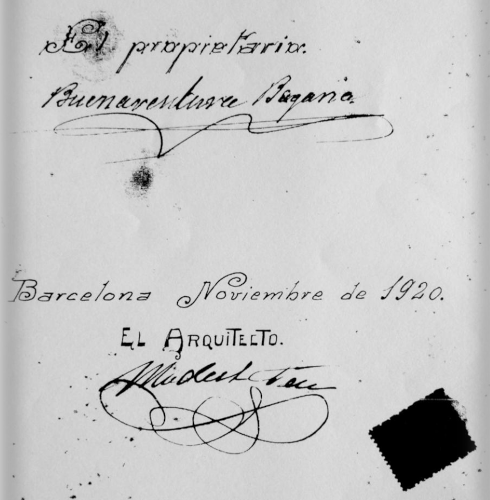 El propietario.
Buenaventura Bagaria.
Barcelona Noviembre de 1920.
EL ARQUITECTO.
Modest Feu